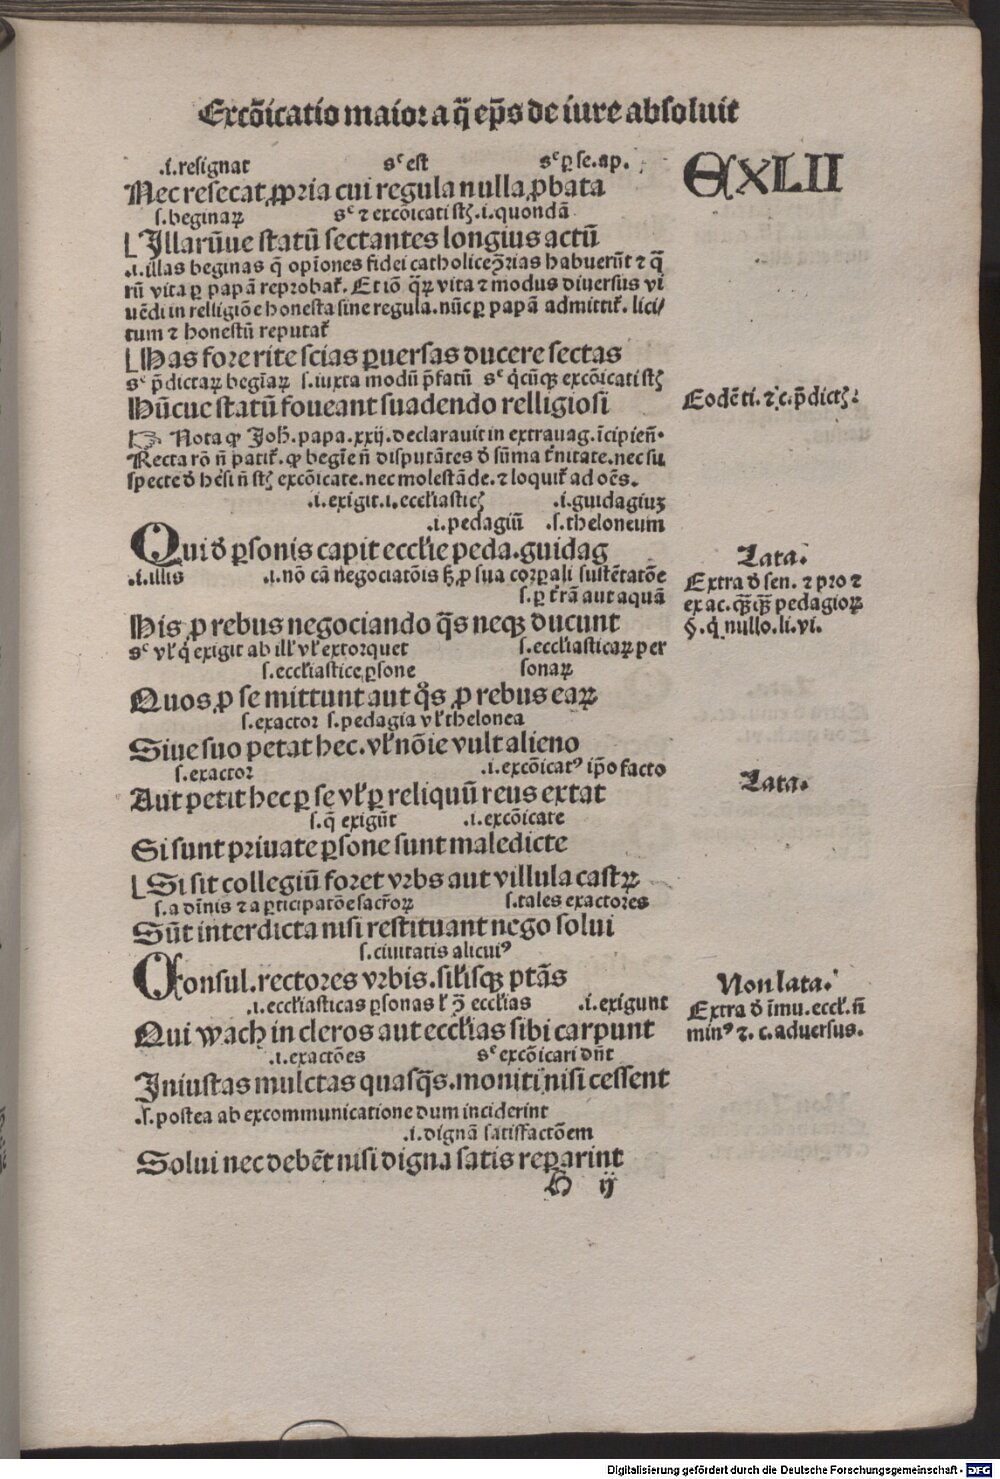 Excōicatio maior a q̄ ep̄s de iure absoluit
.i. resignat sᶜ est sᶜ ꝑ se. ap.
Nec resecat ꝓpria cui regula nulla ꝓbata
EXLII
s. beginaꝝ sᶜ ⁊ excōicati st̄ꝫ .i. quondā
Illarūue statū sectantes longius actū
.i. illas beginas q̄ opīones fidei catholice ꝯ̄rias habuerūt ⁊ q̄
rū vita ꝑ papā reprobat̄. Et iō q̄ꝝ vita ⁊ modus diuersus vi
uēdi in relligiōe honesta sine regula. nūc ꝑ papā admittit̄. lici/
tum ⁊ honestū reputat̄
Has fore rite scias ꝑuersas ducere sectas
sᶜ p̄dictaꝝ begīaꝝ s. iuxta modū p̄fatū sᶜ q̇cūqꝫ excōicati st̄ꝫ
Hūcue statū foueant suadendo relligiosi
Eodē ti. ⁊ c. p̄dictꝫ.
☞ Nota ꝙ Joh̄. papa. xxij. declarauit in extrauag. īcipien̄.
Recta rō n̄ patit̄. ꝙ begīe n̄ disputātes d̄ sūma t̄nitate. nec su
specte d̄ hēsi n̄ st̄ꝫ excōicate. nec molestāde. ⁊ loquit̄ ad oēs.
.i. exigit. i. eccl̄iasticꝫ .i. guidagiuꝫ
.i. pedagiū .s. theloneum
Qui d̄ ꝑsonis capit eccl̄ie peda. guidag
Lata.
.i. illis .i. nō cā negociatōis sꝫ ꝓ sua corꝑali sustētatōe
Extra d̄ sen. ⁊ pro ⁊
s. ꝑ t̄rā aut aquā
ex ac. q̄qꝫ q̄ꝫ pedagioꝝ
His ꝓ rebus negociando q̄s neqꝫ ducunt
§. q̇ nullo. li. vi.
sᶜ vl̄ q̇ exigit ab ill̄ vl̄ extorquet s. eccl̄iasticaꝝ per
s. eccl̄iastice ꝑsone sonaꝝ
Quos ꝓ se mittunt aut q̊s ꝓ rebus eaꝝ
s. exactor s. pedagia vl̄ thelonea
Siue suo petat hec. vl̄ nōie vult alieno
s. exactor .i. excōicatꝰ ip̄o facto
Lata.
Aut petit hec ꝑ se vl̄ ꝑ reliquū reus extat
s. q̄ exigūt .i. excōicate
Si sunt priuate ꝑsone sunt maledicte
Si sit collegiū foret vrbs aut villula castꝝ
s. a dīnis ⁊ a ꝑticipatōe sacr̄oꝝ s. tales exactores
Sūt interdicta nisi restituant nego solui
s. ciuitatis alicuiꝰ
Consul. rectores vrbis. sil̄isqꝫ p̄tās
Non lata.
.i. eccl̄iasticas ꝑsonas l̄ ꝯ̄ eccl̄ias .i. exigunt
Extra d̄ īmu. eccl̄. n̄
Qui wacḥ in cleros aut eccl̄ias sibi carpunt
minꝰ ⁊. c. aduersus.
.i. exactōes sᶜ excōicari dn̄t
Iniustas mulctas quasq̄s. moniti nisi cessent
.s. postea ab excommunicatione dum inciderint
.i. dignā satisfactōem
Solui nec debēt nisi digna satis reparint
H ij
Digitalisierung gefördert durch die Deutsche Forschungsgemeinschaft - DFG